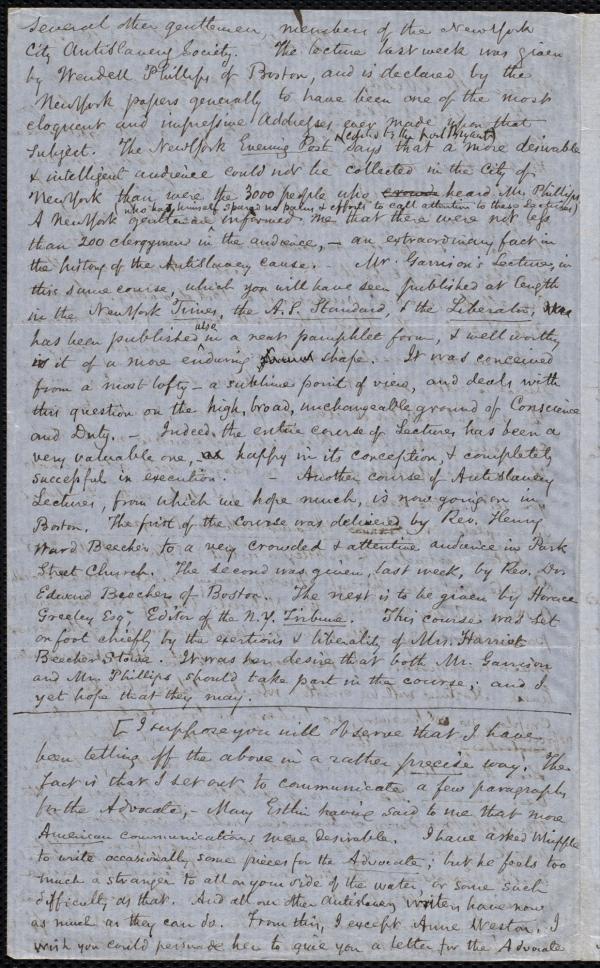 several other gentlemen, members of the New York
City AntiSlavery Society. The lecture last week was given
by Wendell Phillips of Boston, and is declared by the
New York papers generally to have been one of the most
eloquent and impressive Addresses ever made upon that
(edited by the poet Bryant)
subject. The New York Evening Post says that a more desirable
& intelligent audience could not be collected in the City of
New York than were the 3000 people who crowd heard Mr. Phillips.
who has himself spared no pains & efforts to call attention to these Lectures)
A New York gentleman informed me that there were not less
than 200 clergymen in the audience, – an extraordinary fact in
the history of the AntiSlavery cause. – Mr. Garrison's Lecture, in
this same course, which you will have seen published at length
in the New York Times, the A.S. Standard, & the Liberator, was
also
has been published in a neat pamphlet form, & well worthy
is it of a more enduring shape. – It was conceived
from a most lofty – a sublime point of view, and deals with
this question on the high, broad, unchangeable ground of Conscience
and Duty. – Indeed, the entire course of Lectures has been a
very valuable one, as happy in its conception, & completely
successful in execution. – Another course of AntiSlavery
Lectures, from which we hope much, is now going on in
Boston. The first of the course was delivered by Rev. Henry
Ward Beecher to a very crowded & attentive audience in Park
Street Church. The second was given, last week, by Rev. Dr.
Edward Beecher of Boston. The next is to be given by Horace
Greeley Esqr. Editor of the N.Y. Tribune. This course was set
on foot chiefly by the exertions & liberality of Mrs. Harriet
Beecher Stowe. It was her desire that both Mr. Garrison
and Mr. Phillips should take part in the course; and I
yet hope that they may.
[I suppose you will observe that I have
been telling off the above in a rather precise way. The
fact is that I set out to communicate a few paragraphs
for the Advocate, – Mary Estlin having said to me that more
American communications were desirable. I have asked Whipple
to write occasionally some pieces for the Advocate; but he feels too
much a stranger to all on your side of the water, or some such
difficulty as that. And all our other Antislavery writers have now
as much as they can do. From this, I except Anne Weston. I
wish you could persuade her to give you a letter for the Advocate